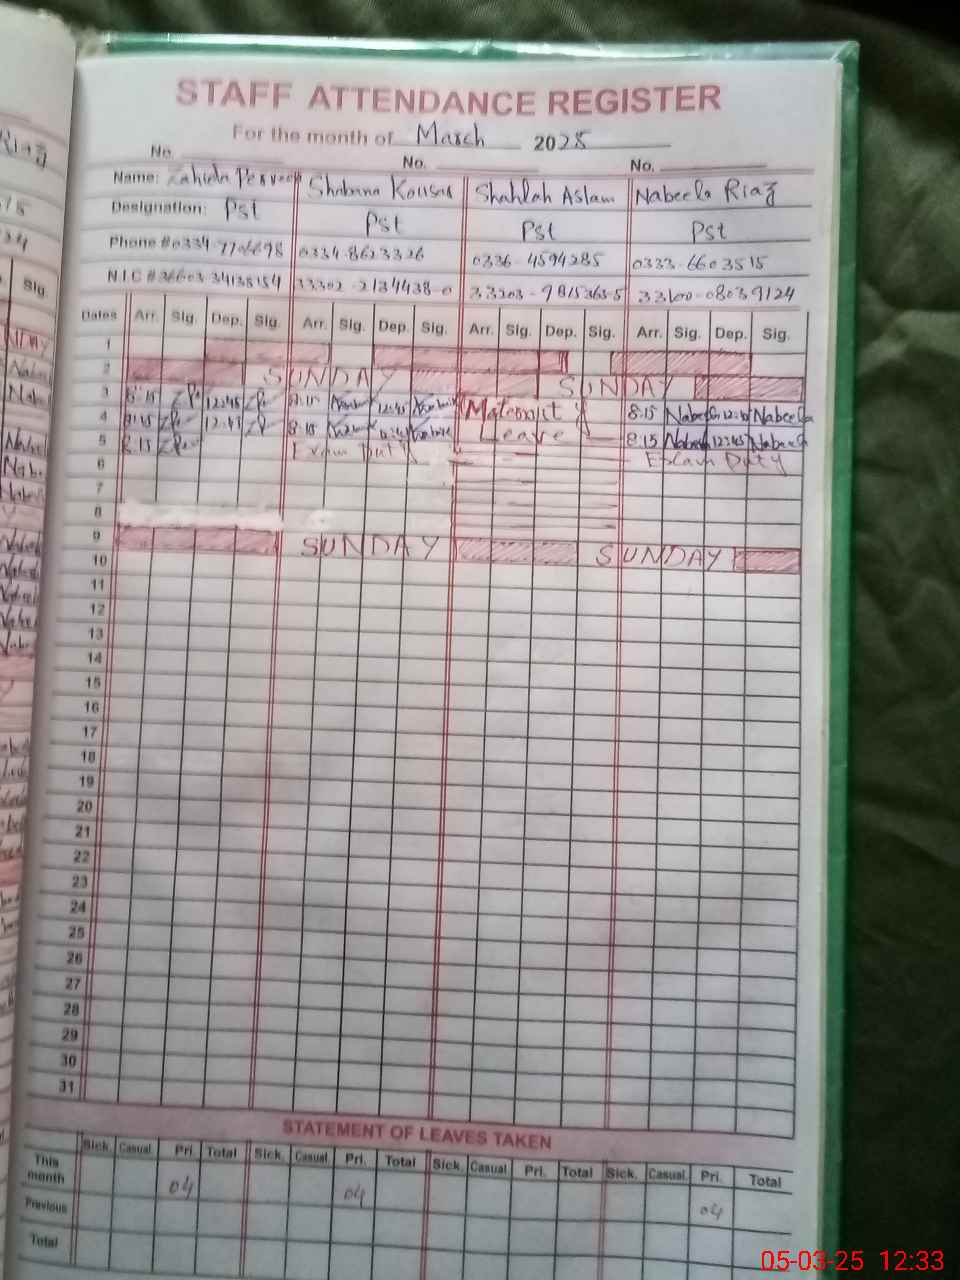 STAFF ATTENDANCE REGISTER
For the month of March 2025
No. No. No.
Name: Zahida Perveen Shabana Kousar Shahlah Aslam Nabeela Riaz
Designation: Pst Pst Pst Pst
Phone # 0334-7706698 0334-8623326 0336-4594285 0333-6603515
N.I.C # 36603 34138154 33302-2134438-0 33203-9815365-5 33100-08039124
Dates Arr. Sig. Dep. Sig. Arr. Sig. Dep. Sig. Arr. Sig. Dep. Sig. Arr. Sig. Dep. Sig.
1
2 SUNDAY SUNDAY
3 8:15 12:45 8:15 12:45 Maternity 8:15 Nabeela 12:45 Nabeela
4 8:15 12:45 8:15 12:45 Leave 8:15 Nabeela 12:45 Nabeela
5 8:15 Exam Duty Exam Duty
6
7
8
9 SUNDAY SUNDAY
10
11
12
13
14
15
16
17
18
19
20
21
22
23
24
25
26
27
28
29
30
31
STATEMENT OF LEAVES TAKEN
Sick. Casual Pri. Total Sick. Casual. Pri. Total Sick. Casual Pri. Total Sick. Casual. Pri. Total
This month 04 04
Previous 04
Total
05-03-25 12:33